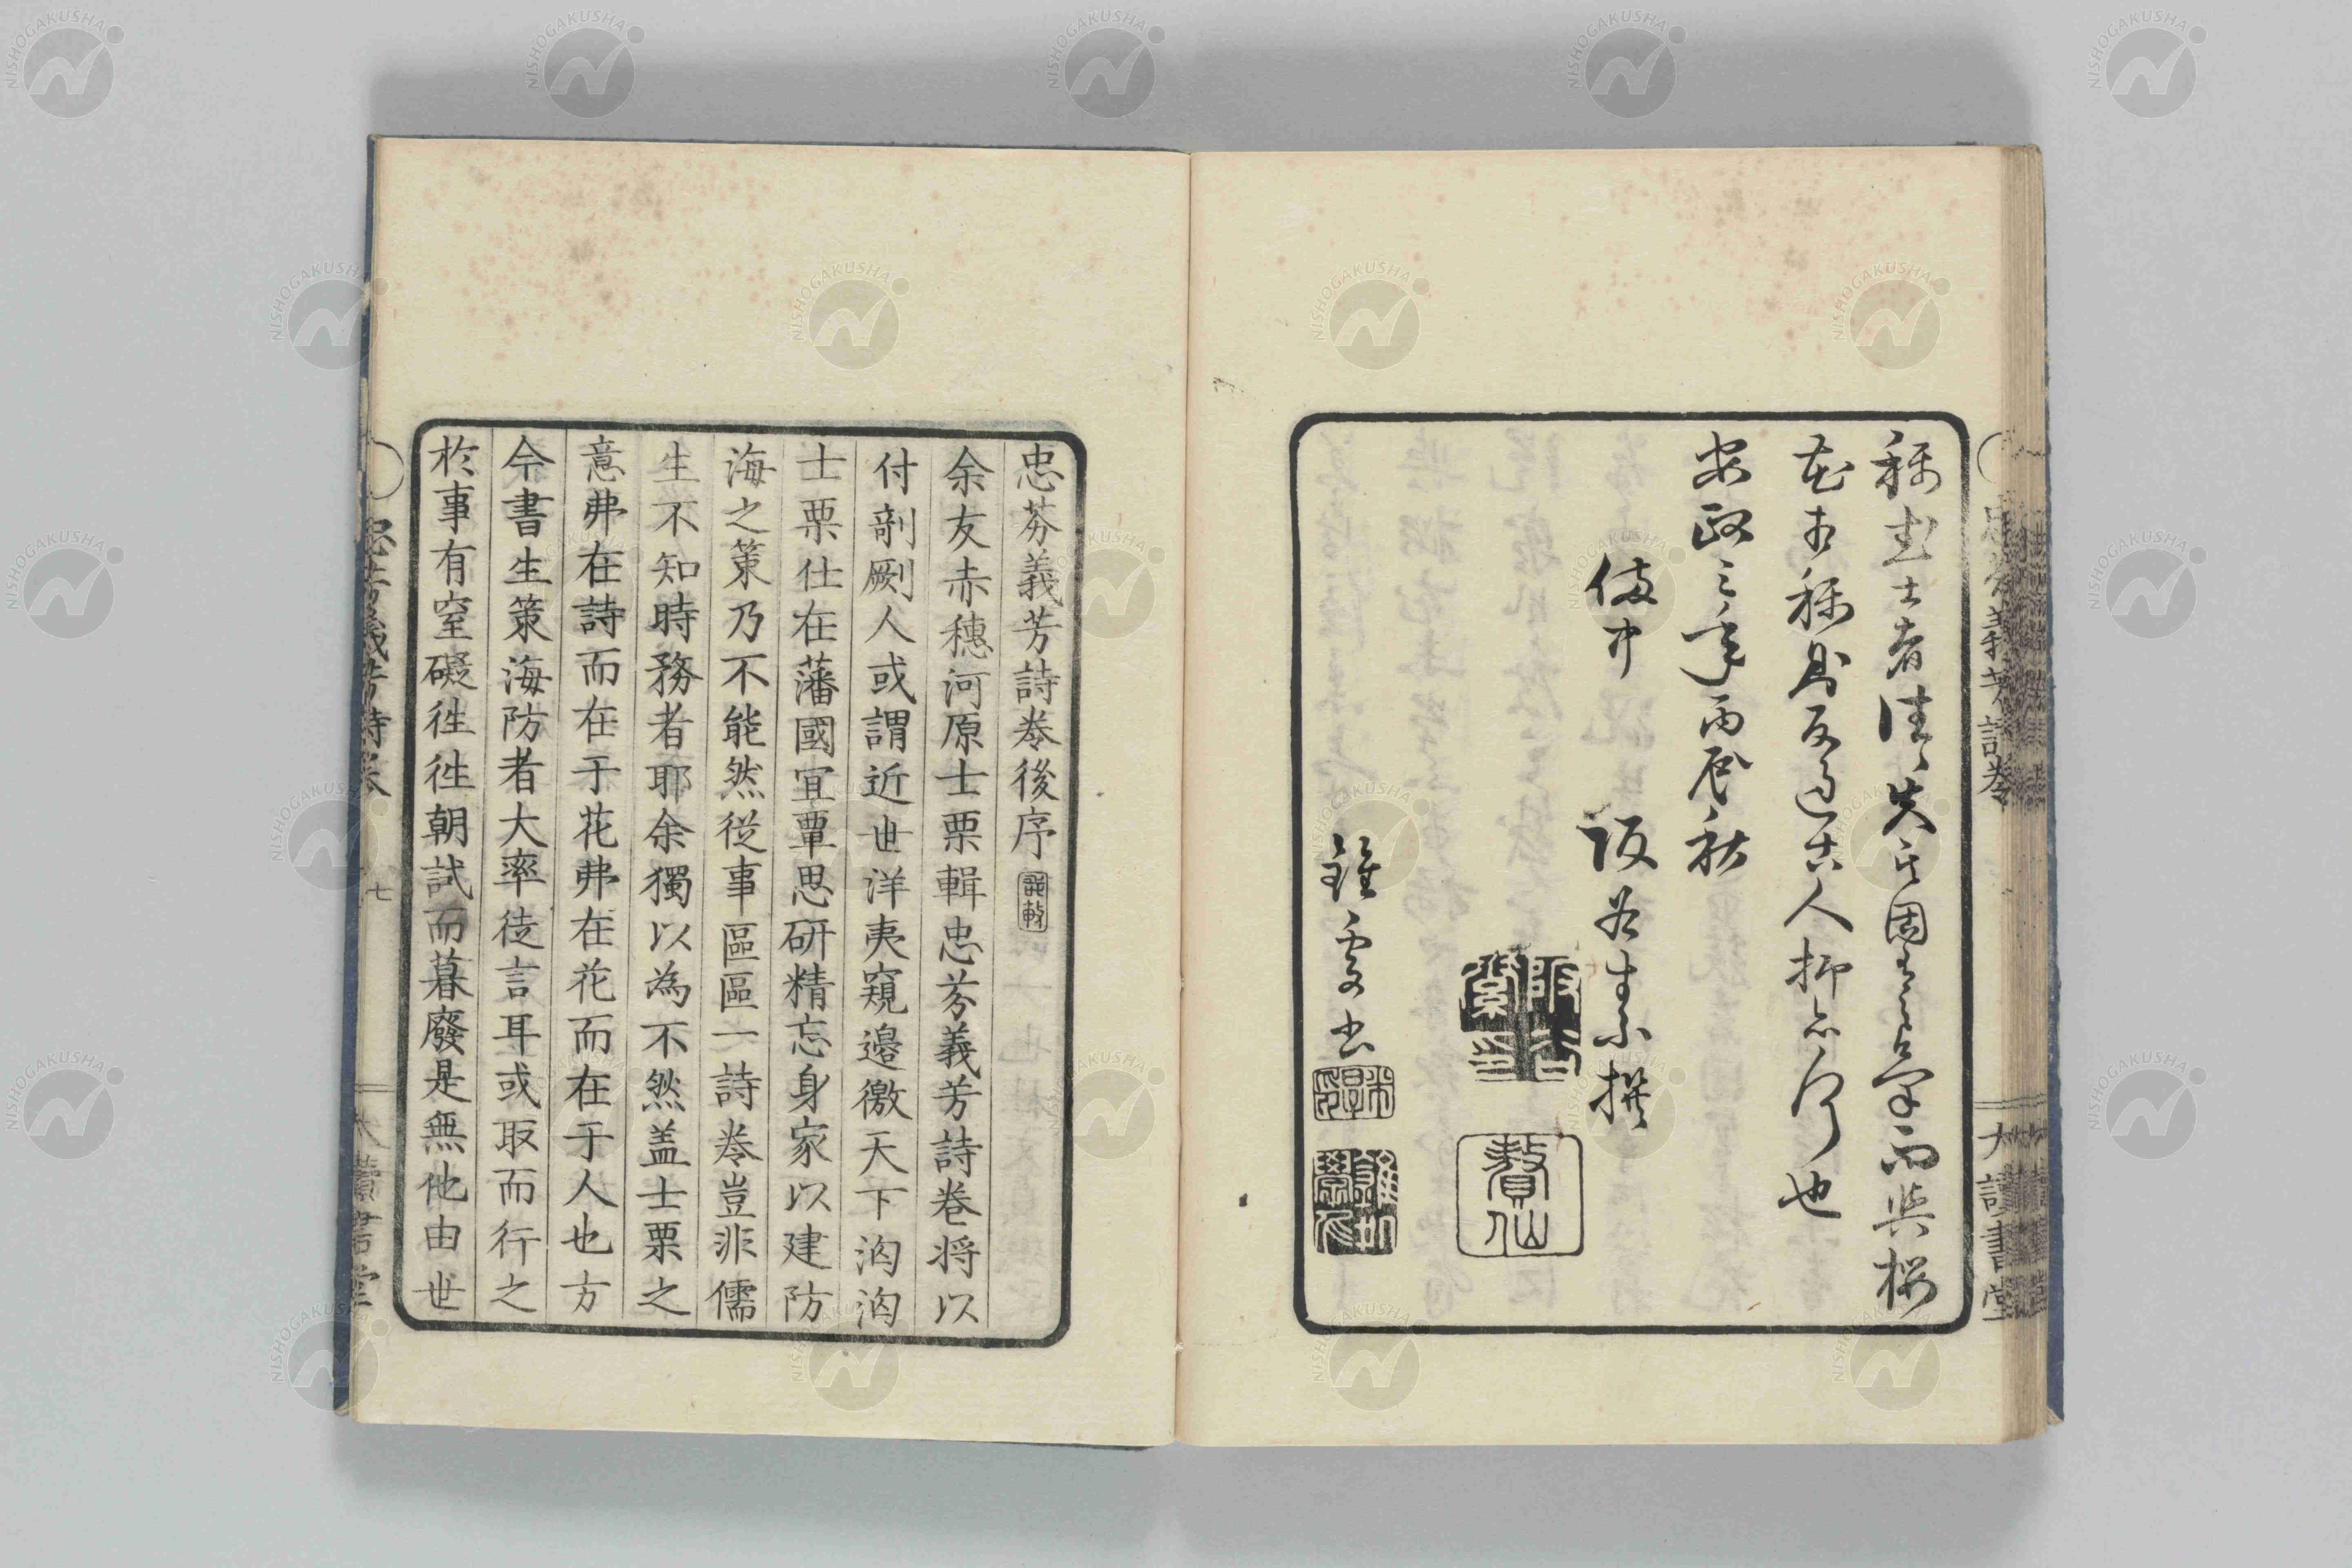 忠芬義芳詩巻
大讀書堂
稱烈士者往〻失之固而與桜
花相稱則反過古人抑亦何也
安政三年丙辰秋
備中 阪谷素撰
書
贅仙
忠芬義芳詩巻後序
余友赤穗河原士栗輯忠芬義芳詩巻将以
付剞劂人或謂近世洋夷窺邊徼天下洶洶
士栗仕在藩國宜覃思研精忘身家以建防
海之策乃不能然従事區區一詩巻豈非儒
生不知時務者耶余獨以為不然盖士栗之
意弗在詩而在于花弗在花而在于人也方
今書生策海防者大率徒言耳或取而行之
於事有窒礙徃徃朝試而暮廢是無他由世
忠芬義芳詩巻
七
大讀書堂
NISHOGAKUSHA